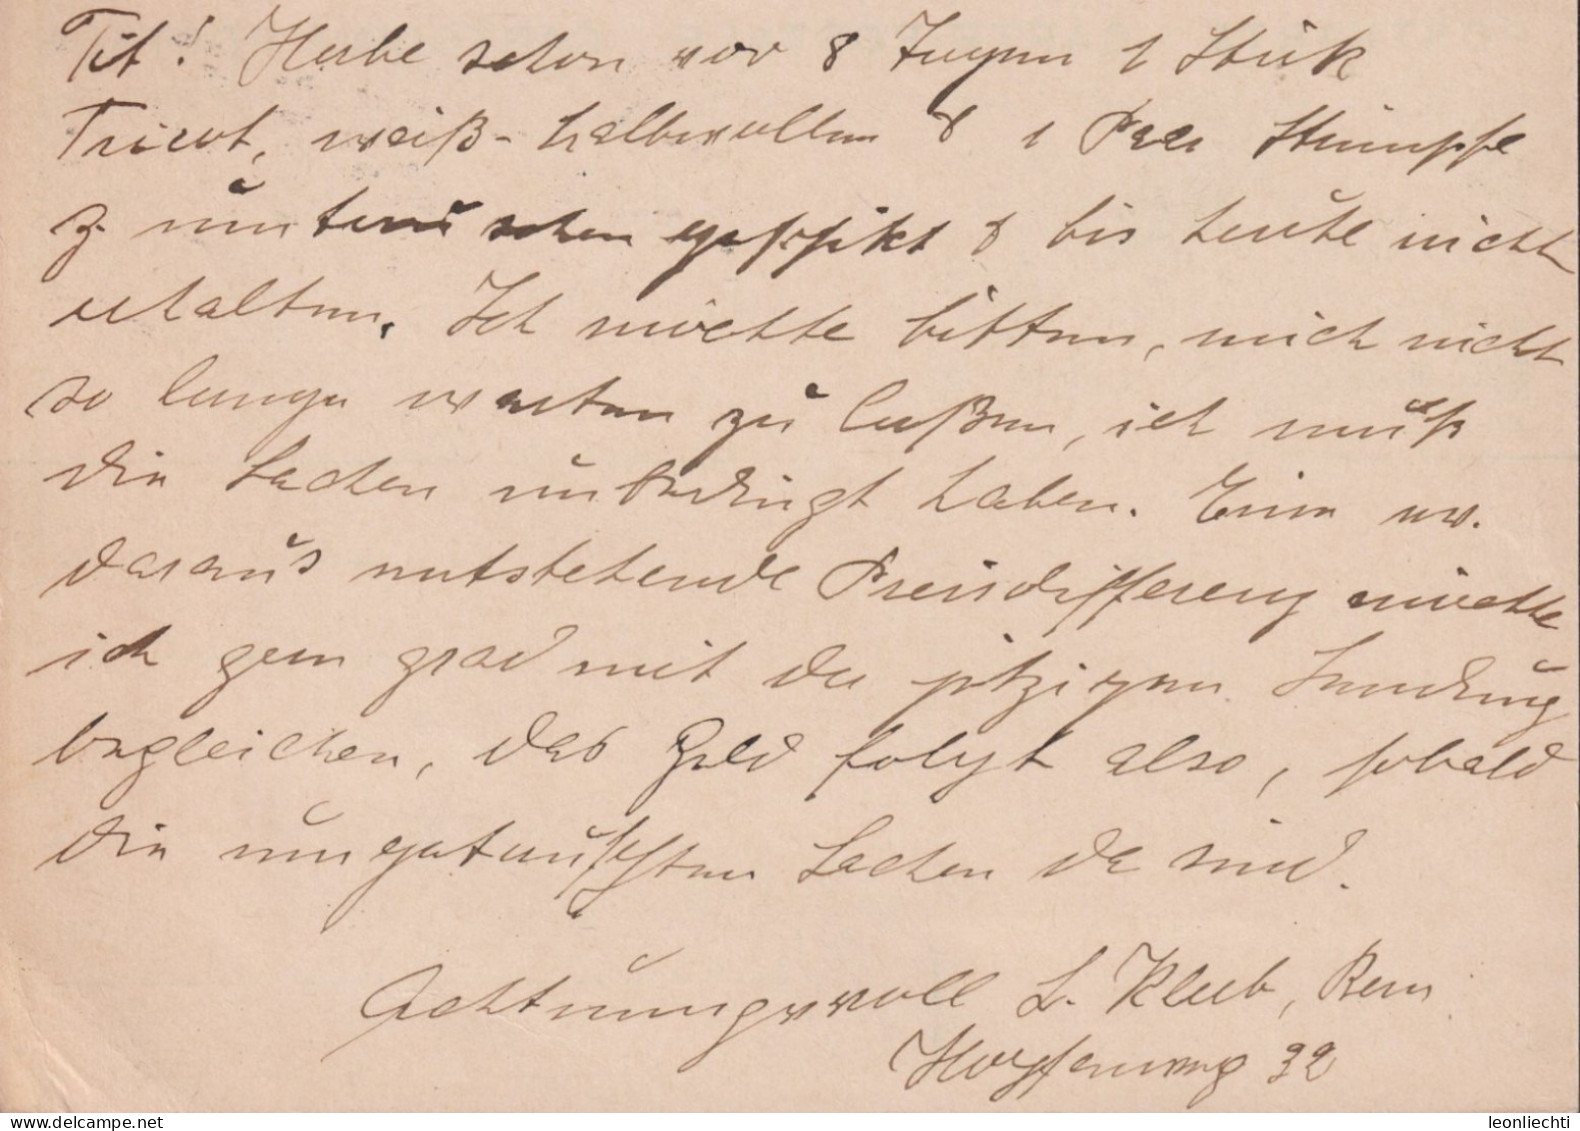 Tit! Habe schon vor 8 Tagen 1 Stück
Tricot, weiß-halbwollen & 1 Paar Strümpfe
z. umtauschen geschikt & bis heute nicht
erhalten. Ich möchte bitten, mich nicht
so lange warten zu laßen, ich muß
die Sachen unbedingt haben. Eine ev.
daraus entstehende Preisdifferenz möchte
ich gern grad mit der jetzigen Sendung
begleichen, das Geld folgt also, sobald
die umgetauschten Sachen da sind.
Achtungsvoll L. Bern
32
leonliechti